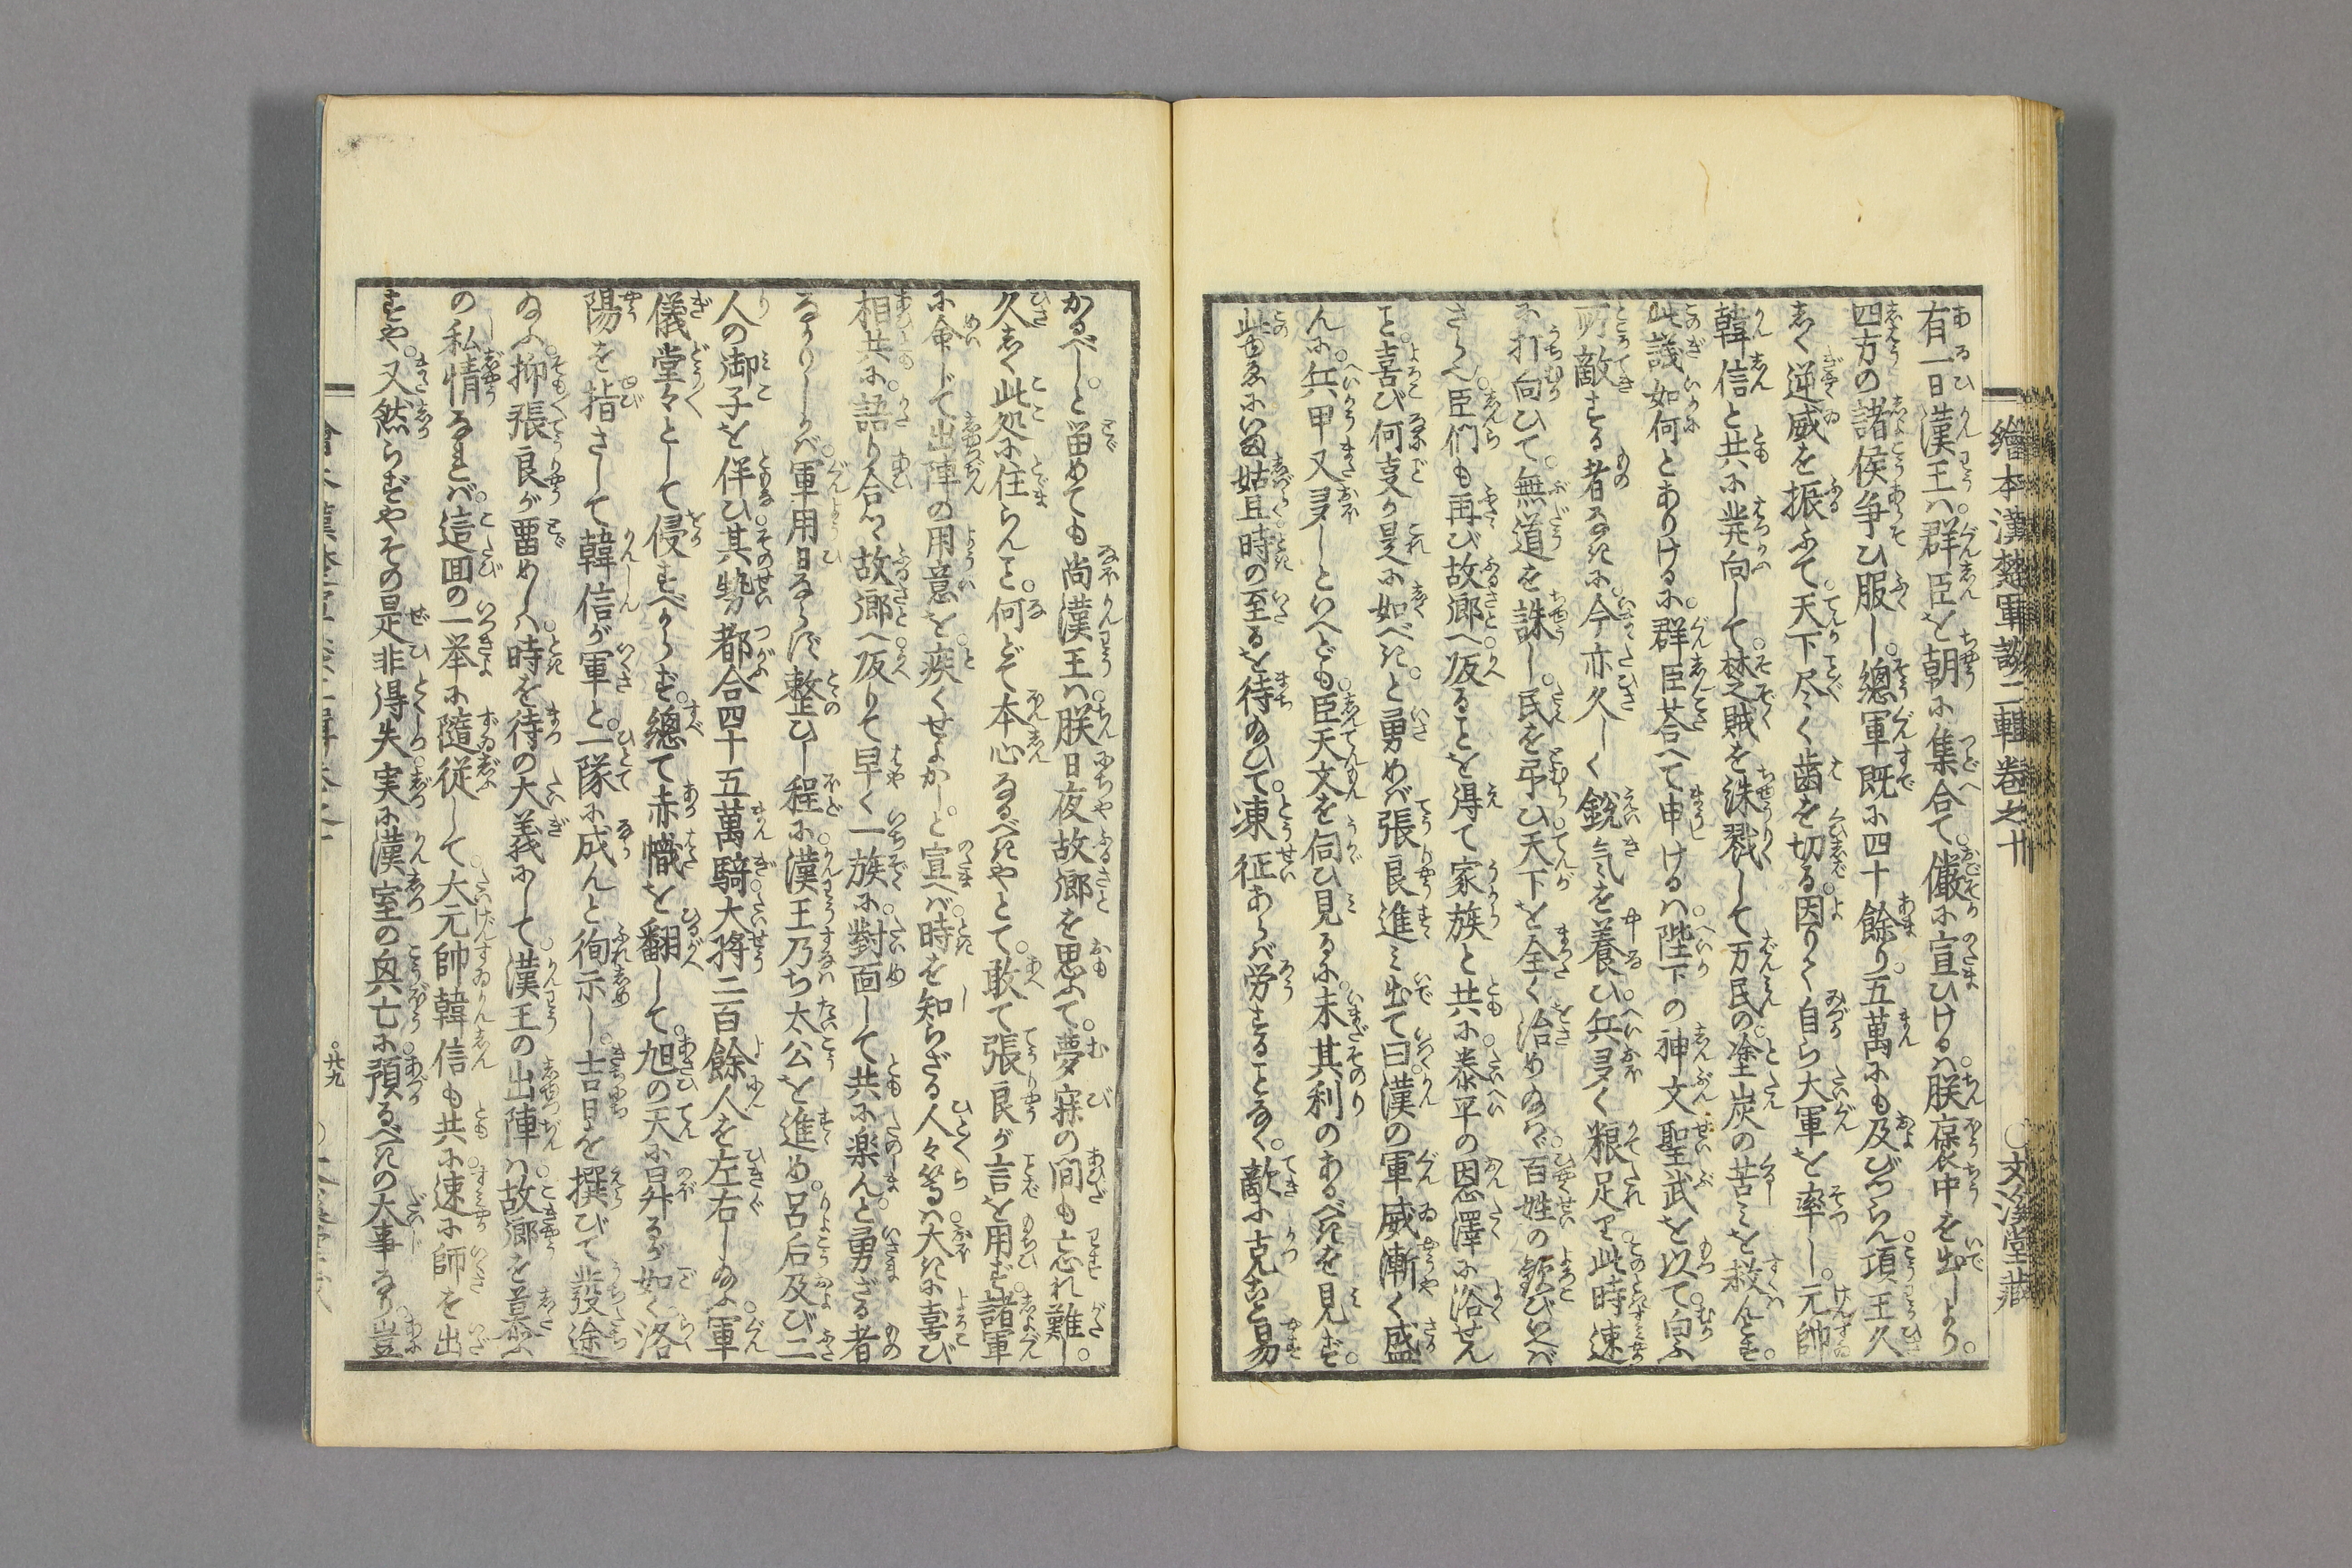 繪本漢楚軍談二輯卷之十
○文溪堂藏
有一日漢王ハ群臣を朝に集合て。儼に宣ひけるハ。朕褒中を出しより。
四方の諸侯争ひ服し。總軍既に四十餘り五萬にも及びつらん項王久
しく逆威を振ふて。天下尽く歯を切る因りて自ら大軍を率し。元帥
韓信と共に発向して。楚賊を誅戮して万民の塗炭の苦ミを救んとす。
此議如何とありけるに。群臣荅へて申けるハ。陛下の神文聖武を以て。向ふ
所敵する者なきに。今亦久しく鋭気を養ひ。兵多く粮足り。此時速
に打向ひて。無道を誅し。民を弔ひ天下を全く治め給ハヾ。百姓の歓びいへバ
さらへ臣们も再び故郷へ皈ることを得て家族と共に。泰平の恩澤に浴せん
と。喜び何事か是に如べき。と勇めバ張良進ミ出て曰漢の軍威漸く盛
んに。兵甲又多しといへども。臣天文を伺ひ見るに。未其利のあるべきを見ず。
此ゑに姑且時の至るを待給ひて。東征あらバ労することなく。敵に克こと易
かるべし。と畄めても尚漢王ハ。朕日夜故郷を思ふて。夢寐の間も忘れ難し。
久しく此処に住らんと。何どて本心なるべきやとて。敢て張良が言を用ず。諸軍
に命じて出陣の用意を。疾くせよかし。と宣へバ。時を知らざる人々等ハ大きに喜び
相共に。語り合ひ故郷へ皈りて早く一族に對面して共に楽ん。と勇ざる者
なかりしかバ。軍用日ならず整ひし程に。漢王乃ち太公を進め。呂后及び二
人の御子を伴ひ。其勢都合四十五萬騎。大将二百餘人を左右し給ふ。軍
儀堂々として侵すべからず。總て赤幟を翻して。旭の天に昇るが如く洛
陽を。指さして韓信が軍と。一隊に成んと徇示し。吉日を撰びて發途
給ふ。抑張良が畄めしハ。時を待の大義にして。漢王の出陣ハ。故郷を慕ふ
の私情なれバ。這回の一挙に隨従して。大元帥韓信も共に。速に師を出
すや。又然らずやその是非得失。実に漢室の興亡に。預るべきの大事なり。豈
○廿九